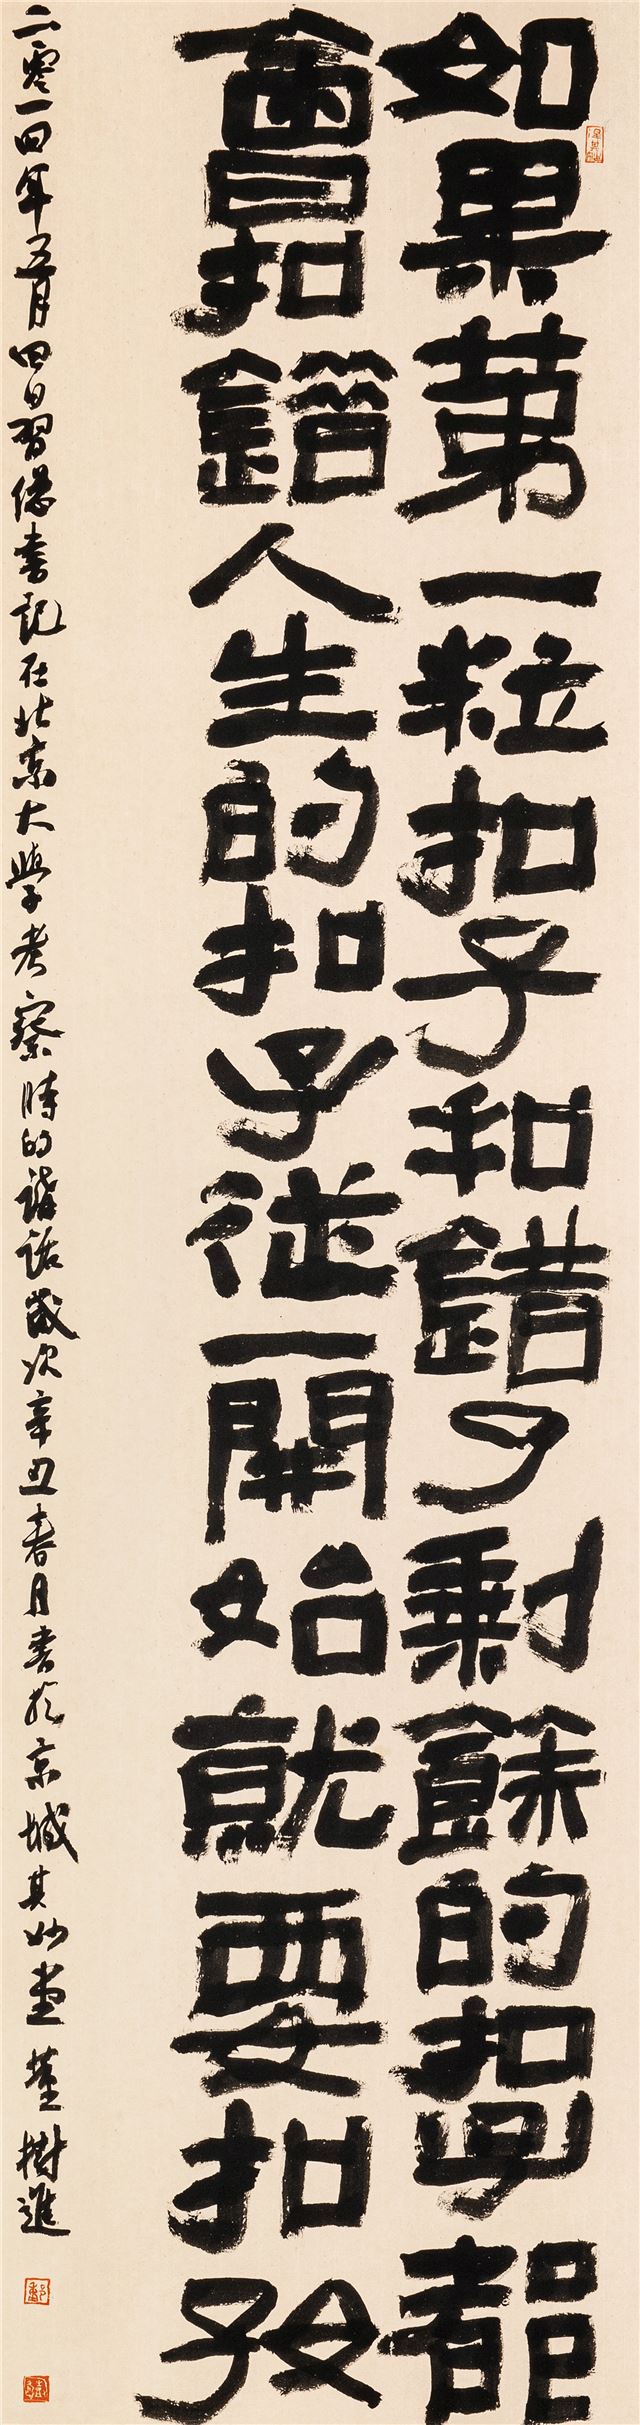 如果第一粒扣子和錯了剩餘的扣子都
會扣錯人生的扣子從一開始就要扣好
二零一四年五月四日習總書記在北京大學考察時的講話歲次辛丑春月書於京城其妙堂董樹進